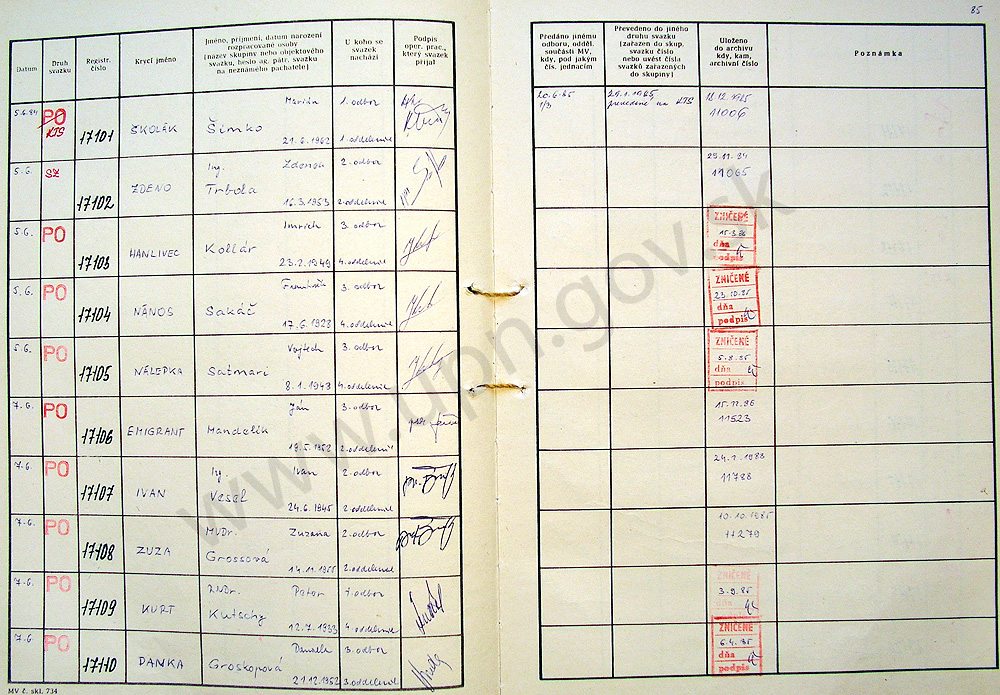 85
Datum
Druh svazku
Registr. číslo
Krycí jméno
Jméno, příjmení, datum narození
rozpracované osoby
(název skupiny nebo objektového
svazku, heslo ag. pátr. svazku
na neznámého pachatele)
U koho se
svazek
nachází
Podpis
oper. prac.,
který svazek
přijal
Předáno jinému
odboru, odděl.
součásti MV,
kdy, pod jakým
čís. jednacím
Převedeno do jiného
druhu svazku
(zařazen do skup.
svazku číslo
nebo uvést čísla
svazků zařazených
do skupiny)
Uloženo
do archivu
kdy, kam,
archivní číslo
Poznámka
5.6.84 PO Marián 1. odbor
KTS 17101 ŠKOLÁK Šimko
21.6.1962 1. oddelenie
20.6.85 29.1.1985
1/3 prevedené na KTS
11006
5.6. SZ Ing. Zdenon 2. odbor
17102 ZDENO Trbola
16.3.1953 2. oddelenie
29.11.84
11065
5.6. PO Imrich 3. odbor
17103 HANLIVEC Kollár
23.2.1949 4. oddelenie
ZNIČENÉ
15.3.86
dňa
podpis
5.6. PO František 3. odbor
17104 NÁNOS Sakáč
17.6.1928 4. oddelenie
ZNIČENÉ
23.10.85
dňa
podpis
5.6. PO Vojtech 3. odbor
17105 NÁLEPKA Satmari
8.1.1943 4. oddelenie
ZNIČENÉ
5.8.85
dňa
podpis
7.6. PO Ján 3. odbor
17106 EMIGRANT Mandelík
19.5.1952 2. oddelenie
15.12.86
11523
7.6. PO Ing. Ivan 2. odbor
17107 IVAN Vesel
24.6.1945 2. oddelenie
24.1.1988
11788
7.6. PO MVDr. Zuzana 2. odbor
17108 ZUZA Grossová
14.11.1955 2. oddelenie
10.10.1985
11279
7.6. PO RNDr. Peter 1. odbor
17109 KURT Kutschy
12.7.1933 4. oddelenie
ZNIČENÉ
3.9.85
dňa
podpis
7.6. PO Daniela 3. odbor
17110 DANKA Groskopová
21.12.1952 3. oddelenie
ZNIČENÉ
6.4.85
dňa
podpis
MV č. skl. 734
www.upn.gov.sk